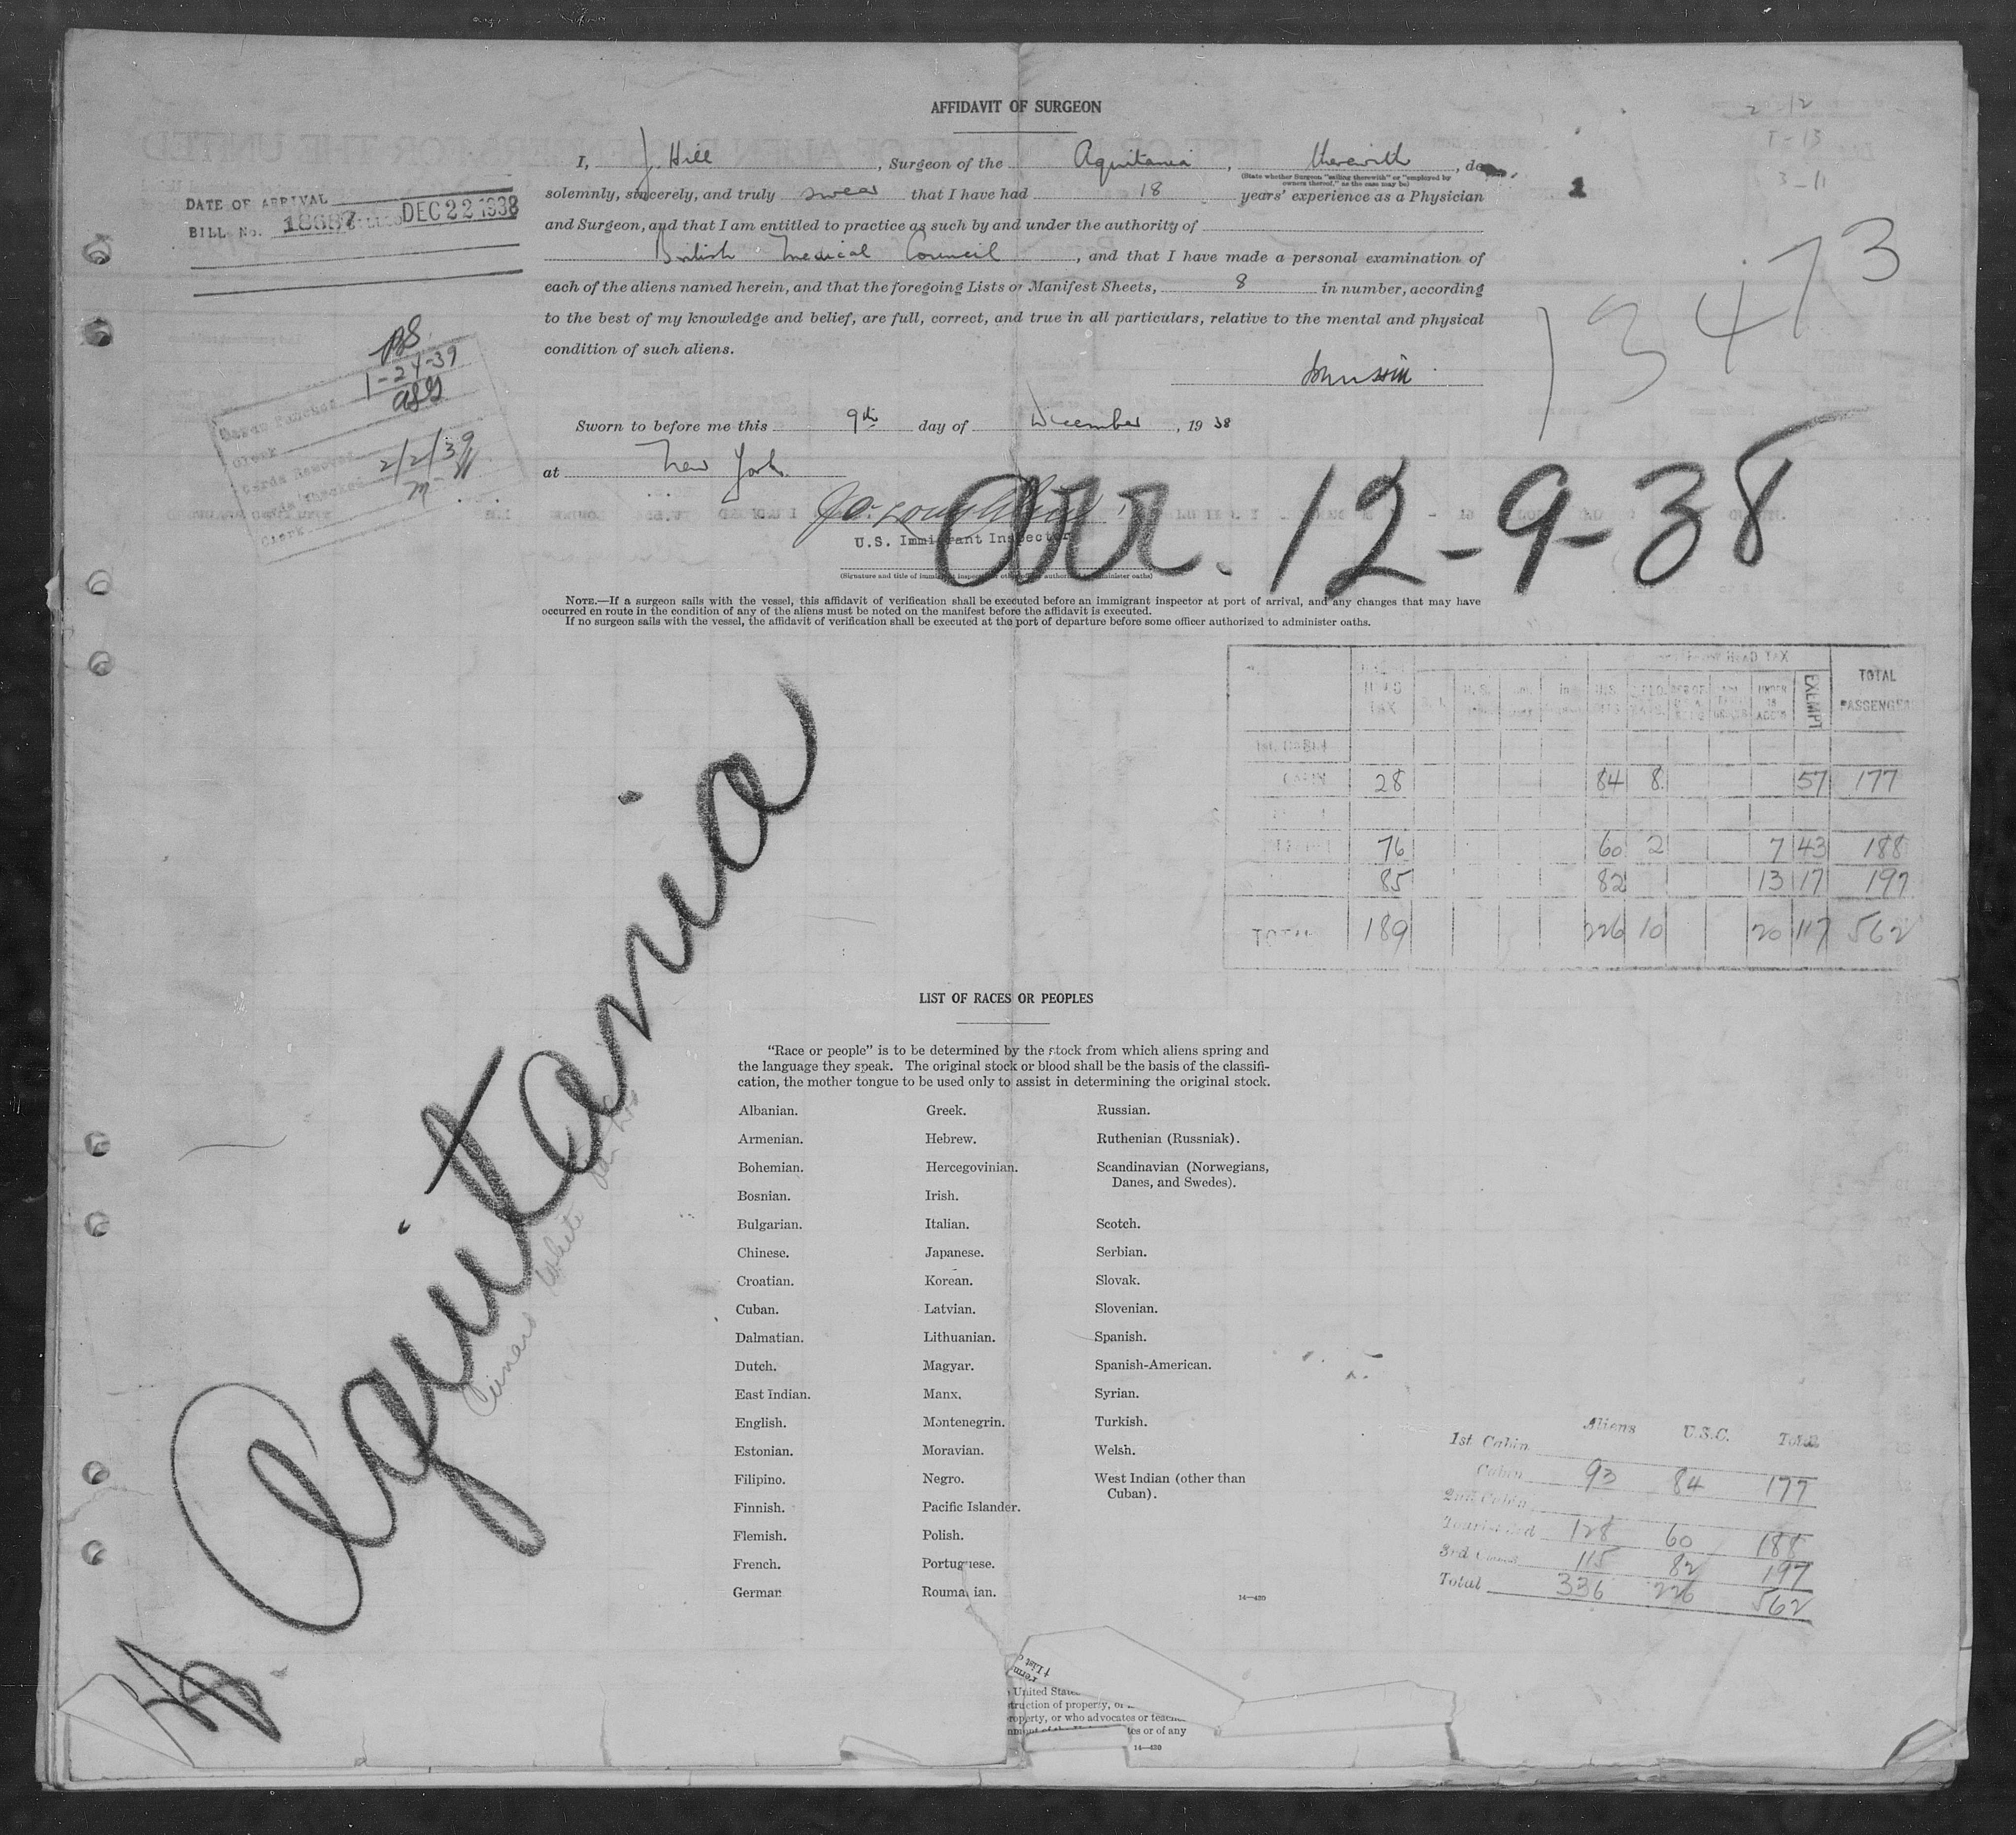 AFFIDAVIT OF SURGEON
I, J. Hill, Surgeon of the Aquitania, therewith, do
(State whether Surgeon "sailing therewith" or "employed by
owners thereof," as the case may be)
solemnly, sincerely, and truly swear that I have had 18 years' experience as a Physician
and Surgeon, and that I am entitled to practice as such by and under the authority of
British Medical Council, and that I have made a personal examination of
each of the aliens named herein, and that the foregoing Lists or Manifest Sheets, 8 in number, according
to the best of my knowledge and belief, are full, correct, and true in all particulars, relative to the mental and physical
condition of such aliens.
Sworn to before me this 9th day of December, 1938
at New York.
U.S. Immigrant Inspector
(Signature and title of immigrant inspector or other officer authorized to administer oaths)
NOTE.—If a surgeon sails with the vessel, this affidavit of verification shall be executed before an immigrant inspector at port of arrival, and any changes that may have
occurred en route in the condition of any of the aliens must be noted on the manifest before the affidavit is executed.
If no surgeon sails with the vessel, the affidavit of verification shall be executed at the port of departure before some officer authorized to administer oaths.
DATE OF ARRIVAL
BILL No. DEC 22 1938
1-24-39
2/2/39
Clerk
1
T-13
3-11
13473
arr. 12-9-38
Aquitania
Cunard White
HEAD TAX
EXEMPT
TOTAL
PASSENGERS
28 84 8 57 177
76 60 2 7 43 188
85 82 13 17 197
TOTAL 189 226 10 20 117 562
LIST OF RACES OR PEOPLES
"Race or people" is to be determined by the stock from which aliens spring and
the language they speak. The original stock or blood shall be the basis of the classifi-
cation, the mother tongue to be used only to assist in determining the original stock.
Albanian.
Armenian.
Bohemian.
Bosnian.
Bulgarian.
Chinese.
Croatian.
Cuban.
Dalmatian.
Dutch.
East Indian.
English.
Estonian.
Filipino.
Finnish.
Flemish.
French.
German
Greek.
Hebrew.
Hercegovinian.
Irish.
Italian.
Japanese.
Korean.
Latvian.
Lithuanian.
Magyar.
Manx.
Montenegrin.
Moravian.
Negro.
Pacific Islander.
Polish.
Portuguese.
Roumanian.
Russian.
Ruthenian (Russniak).
Scandinavian (Norwegians,
Danes, and Swedes).
Scotch.
Serbian.
Slovak.
Slovenian.
Spanish.
Spanish-American.
Syrian.
Turkish.
Welsh.
West Indian (other than
Cuban).
14—430
Aliens U.S.C. Total
1st Cabin
Cabin 93 84 177
2nd Cabin
Tourist 3rd 128 60 188
3rd Class 115 82 197
Total 336 226 562
† List
United States
struction of property, or
property, or who advocates or
tes or of any
14—430